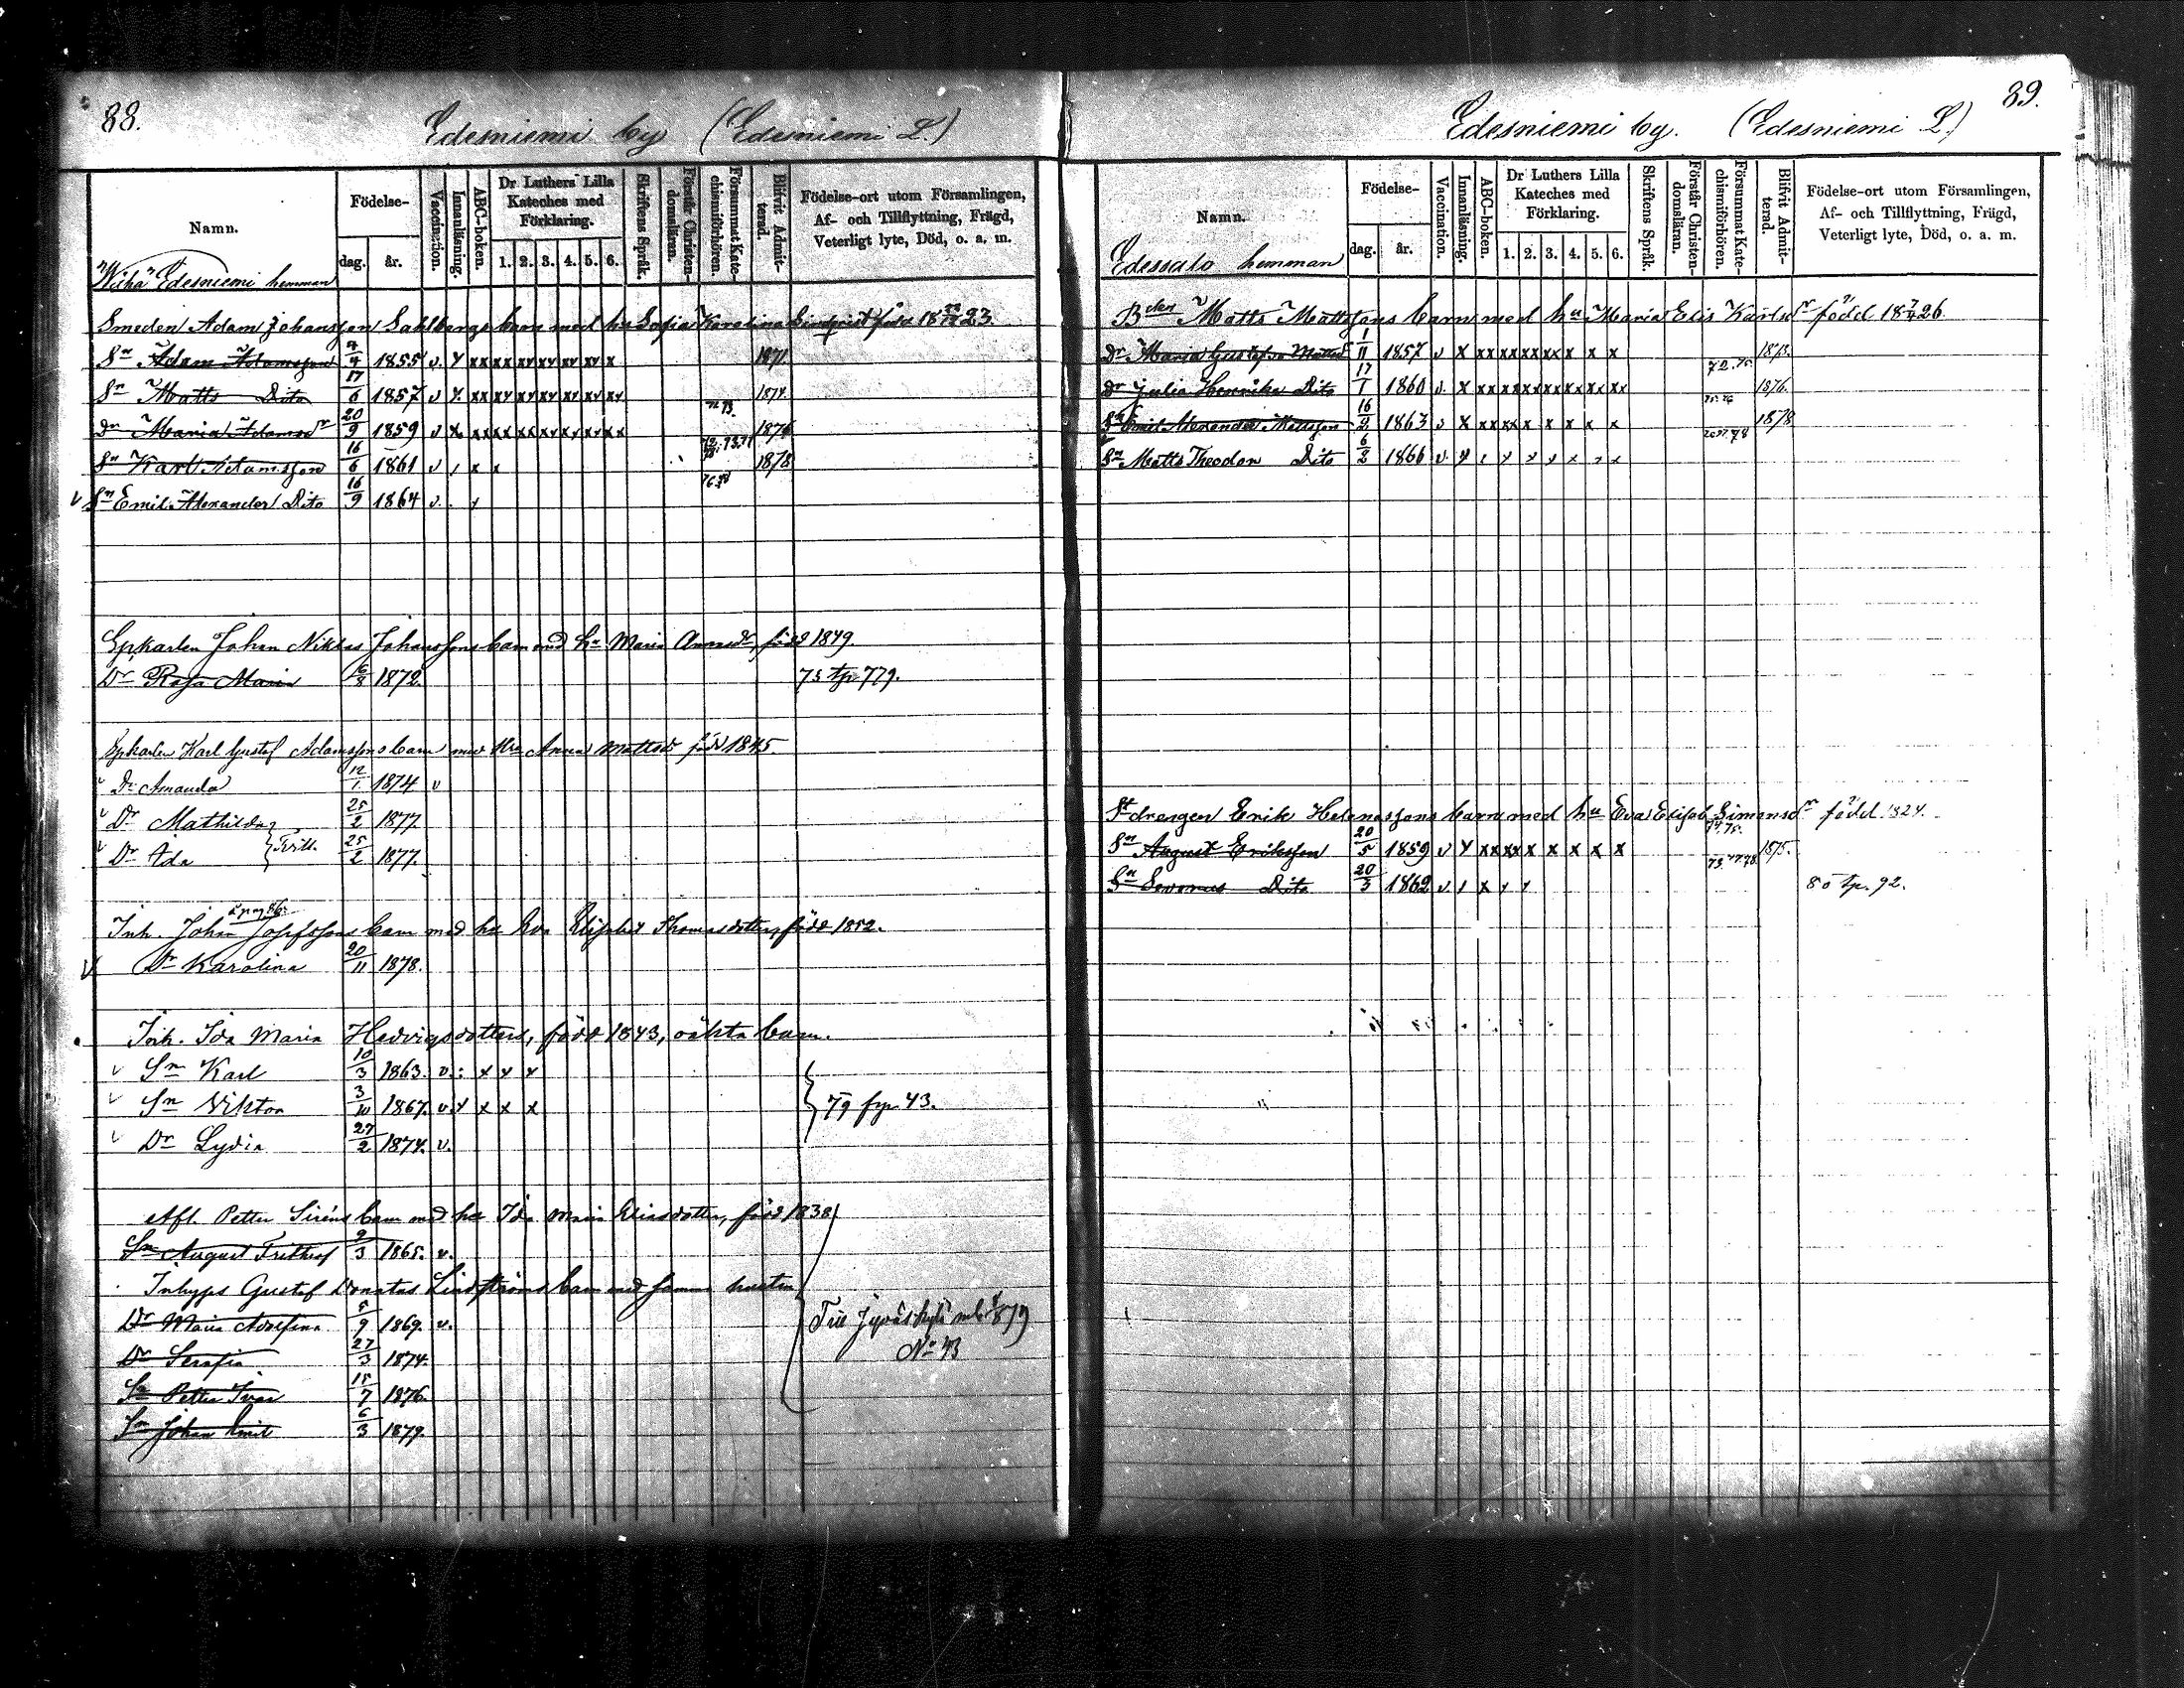 88.
Edesniemi by (Edesniemi L.)
Namn.
Födelse-
dag.
år.
Vaccination.
Innanläsning.
ABC-boken.
Dr Luthers Lilla Kateches med Förklaring.
1. 2. 3. 4. 5. 6.
Skriftens Språk.
Förstår Christendomsläran.
Försummat Katechismiförhören.
Blifvit Admitterad.
Födelse-ort utom Församlingen, Af- och Tillflyttning, Frägd, Veterligt lyte, Död, o. a. m.
"Wiha" Edesniemi hemman
Smeden Adam Johansson Sahlbergs barn med hu Sofia Karolina Lindqvist född 18 23.
Sn Adam Adamsson 4/4 1855 v. x xx xx xx xx xx x 1871
Sn Matts Dito 17/6 1857 v x xx xx xx xx xx xx 1874.
Dr Maria Adamsdr 20/9 1859 v x xx xx xx xx xx xx 72 73. 1876
Sn Karl Adamsson 16/6 1861 v x x 1878
Sn Emil Alexander Dito 16/9 1864 v. x
Johan Niklas Johanssons barn med hu Maria född 1849.
Dr Maria 1872. 75 779.
Karl Gustaf Adamssons barn med Hu Anna Mattsdr född 1845
Dr Amanda 12/1 1874 v
Dr Mathilda 25/2 1877
Dr Ada } Tvill. 25/2 1877.
Inh. Johan Josefssons barn med hu Eva Elisabet Thomasdotter, född 1852.
Dr Karolina 20/11 1878.
Inh. Ida Maria Hedvigsdotters, född 1843, oäkta barn.
Sn Karl 10/3 1863. v. x x x
Sn Viktor 3/10 1867. v. x x x x } 79 43.
Dr Lydia 27/2 1874. v.
Afl. Petter Siréns barn med hu Ida Maria Eliasdotter, född 1838
Sn August Frithiof 9/3 1865. v.
Inhyses Gustaf Donatus Lindströms barn med samma hustru
Dr Maria Adolfina 5/9 1869. v.
Till Jyväskylä 879
No 43
Dr Serafia 27/3 1874.
Sn Petter Ivar 15/7 1876.
Sn Johan Emil 6/3 1879.
89.
Edesniemi by. (Edesniemi L.)
Namn.
Födelse-
dag.
år.
Vaccination.
Innanläsning.
ABC-boken.
Dr Luthers Lilla Kateches med Förklaring.
1. 2. 3. 4. 5. 6.
Skriftens Språk.
Förstår Christendomsläran.
Försummat Katechismiförhören.
Blifvit Admitterad.
Födelse-ort utom Församlingen, Af- och Tillflyttning, Frägd, Veterligt lyte, Död, o. a. m.
Edessalo hemman
Bden Matts Mattssons barn med hu Maria Elis Karlsdr född 18 26.
Dr Maria Gustafva Mattsdr 1/11 1857 v x xx xx xx xx x x x 72. 75. 1873.
Dr Julia Henrika Dito 17/1 1860 v. x xx xx xx xx xx xx xx 1876.
Sn Emil Alexander Mattsson 16/2 1863 v x xx xx x x x x x 1878
Sn Matts Theodor Dito 6/2 1866 v. x x x x x x x x
Stdrengen Erik Helenassons barn med hu Eva Elisab Simonsdr född 1824.
Sn August Eriksson 20/5 1859 v x xx xx x x x x x 74. 75. 1875.
Sn Dito 20/3 1862 v x x x x 80 tp. 92.